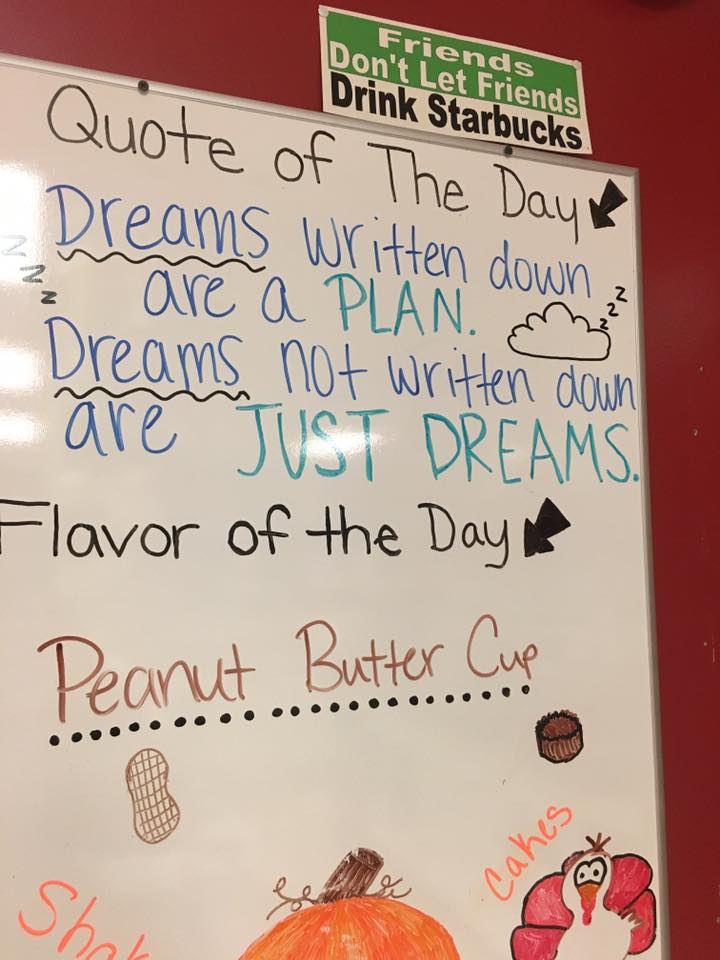 Friends
Don't Let Friends
Drink Starbucks
Quote of The Day
Dreams written down
are a PLAN.
Dreams not written down
are JUST DREAMS.
z z z
z z z
Flavor of the Day
Peanut Butter Cup
Cakes